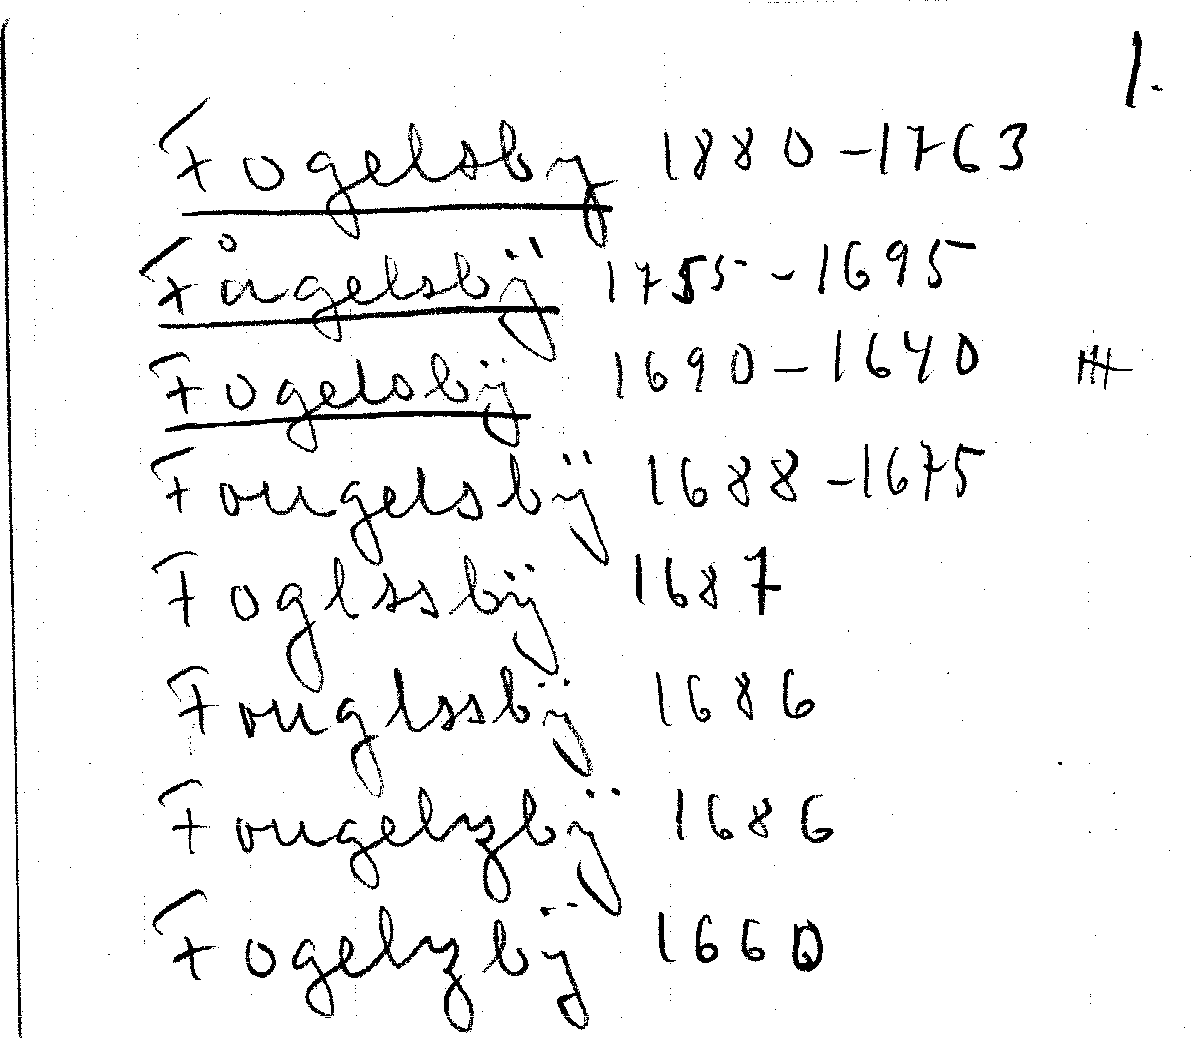 1.
Fogelsby 1880-1763
Fågelsbÿ 1755-1695
Fogelsbÿ 1690-1640
Fougelsbÿ 1688-1675
Foglssbÿ 1687
Fouglssbÿ 1686
Fougelzbÿ 1686
Fogelzbÿ 1660